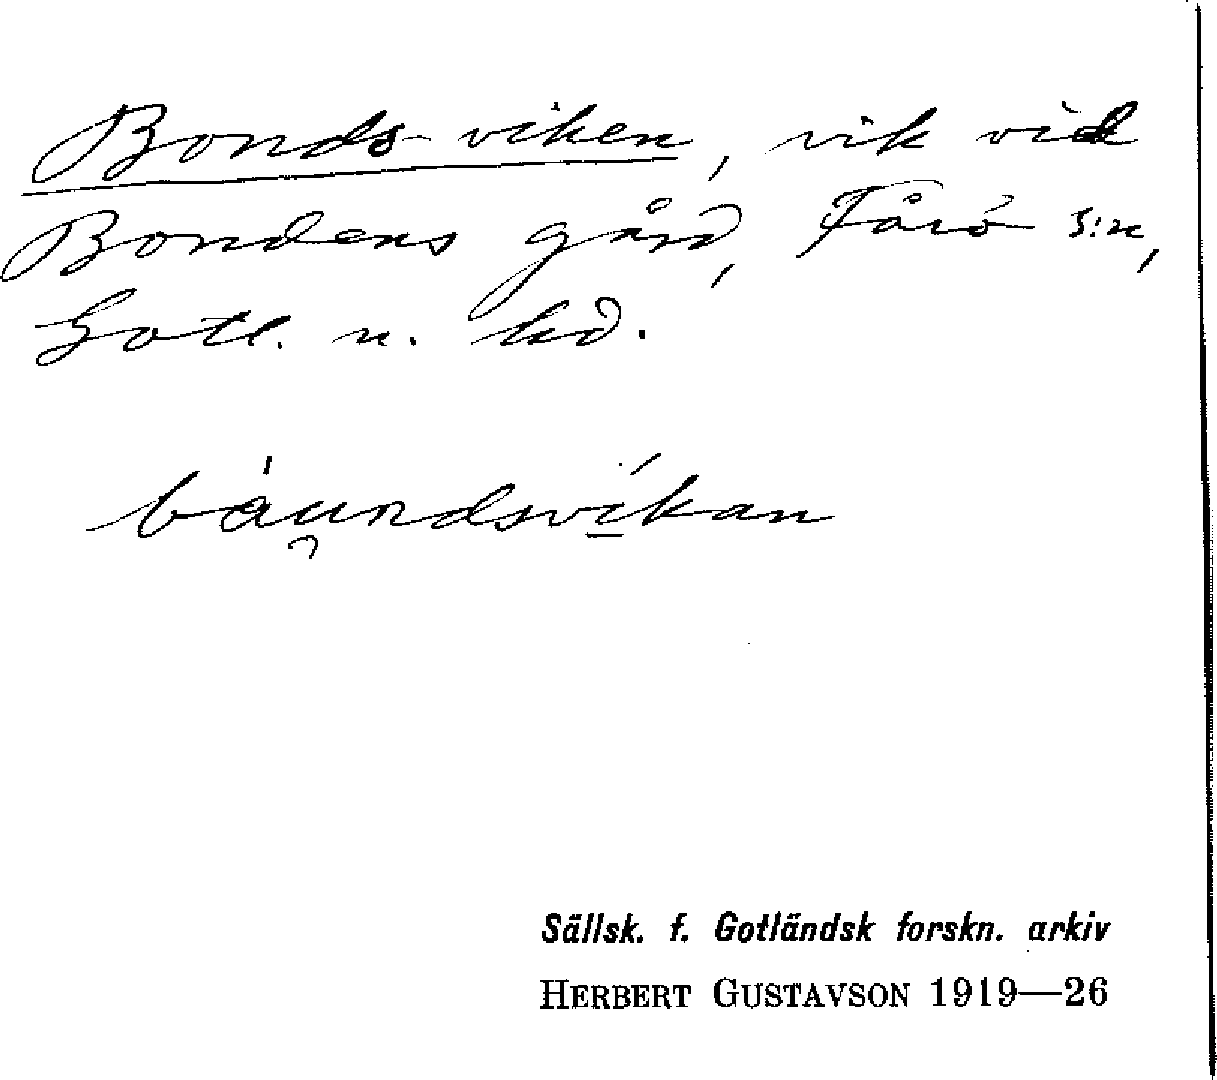 Bonds-viken, vik vid
Bondens gård, Fårö s:n,
Gotl. n. hd.
bàu̯ndsví̱kan
Sällsk. f. Gotländsk forskn. arkiv
HERBERT GUSTAVSON 1919—26